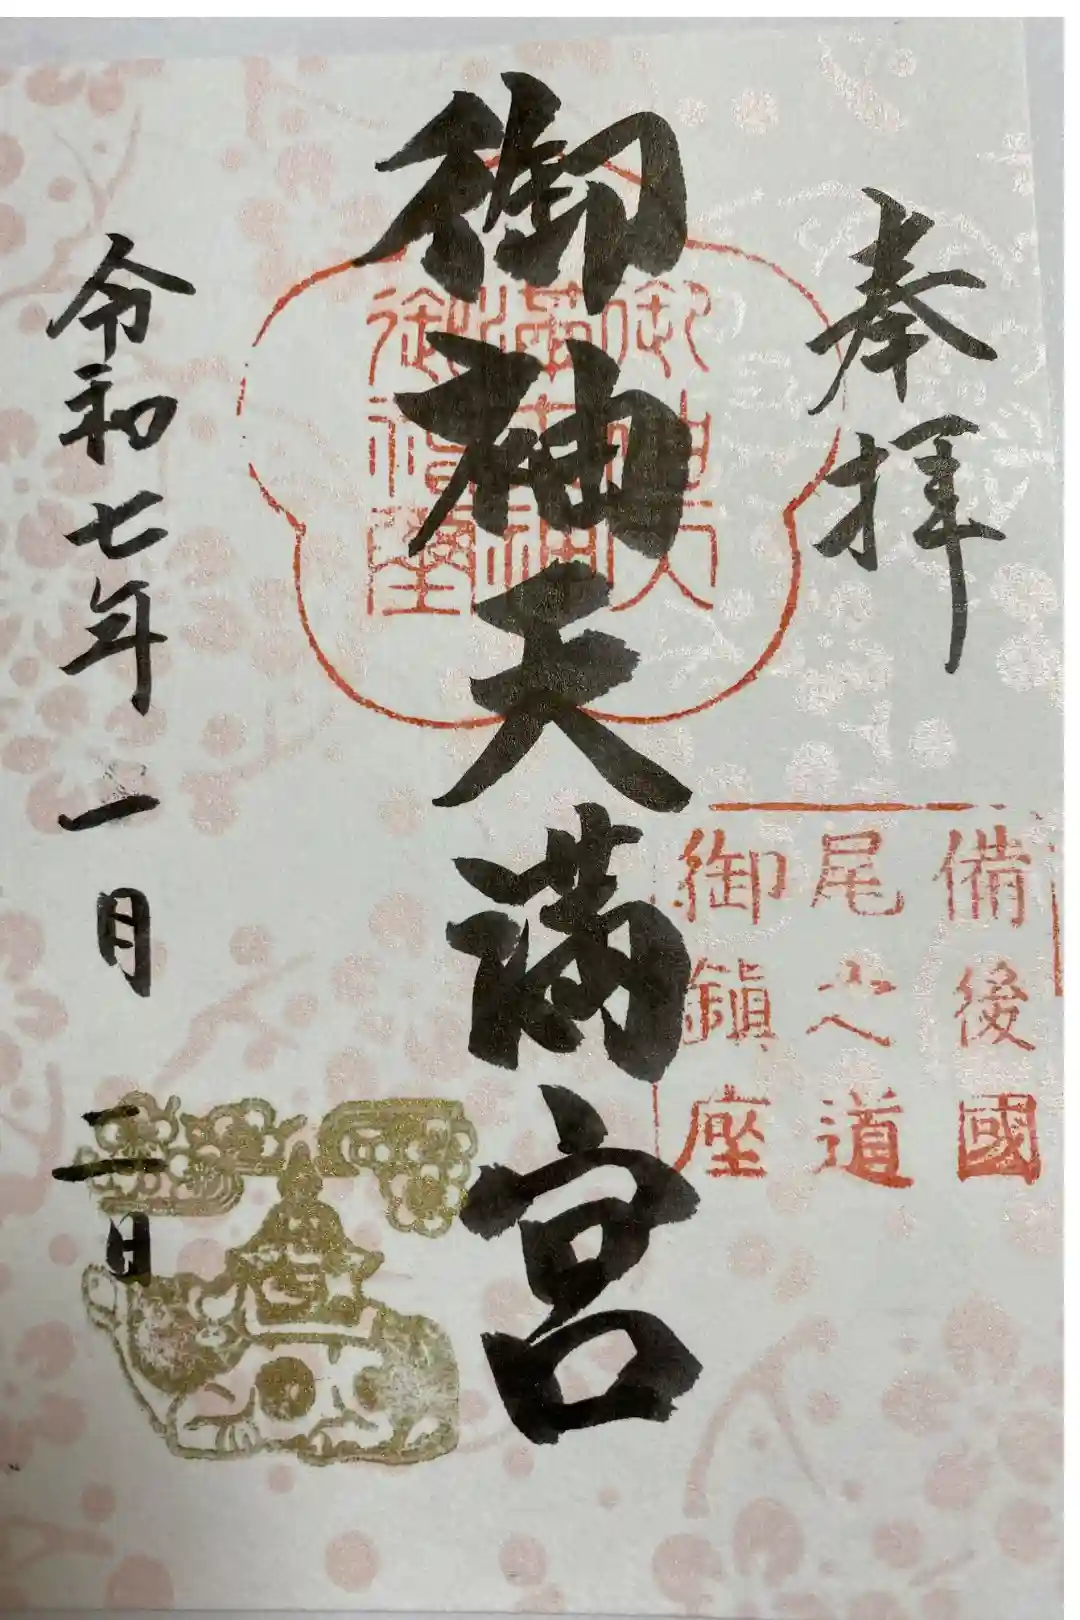 奉拝
備後國
尾之道
御鎮座
御袖天満宮
令和七年一月二日